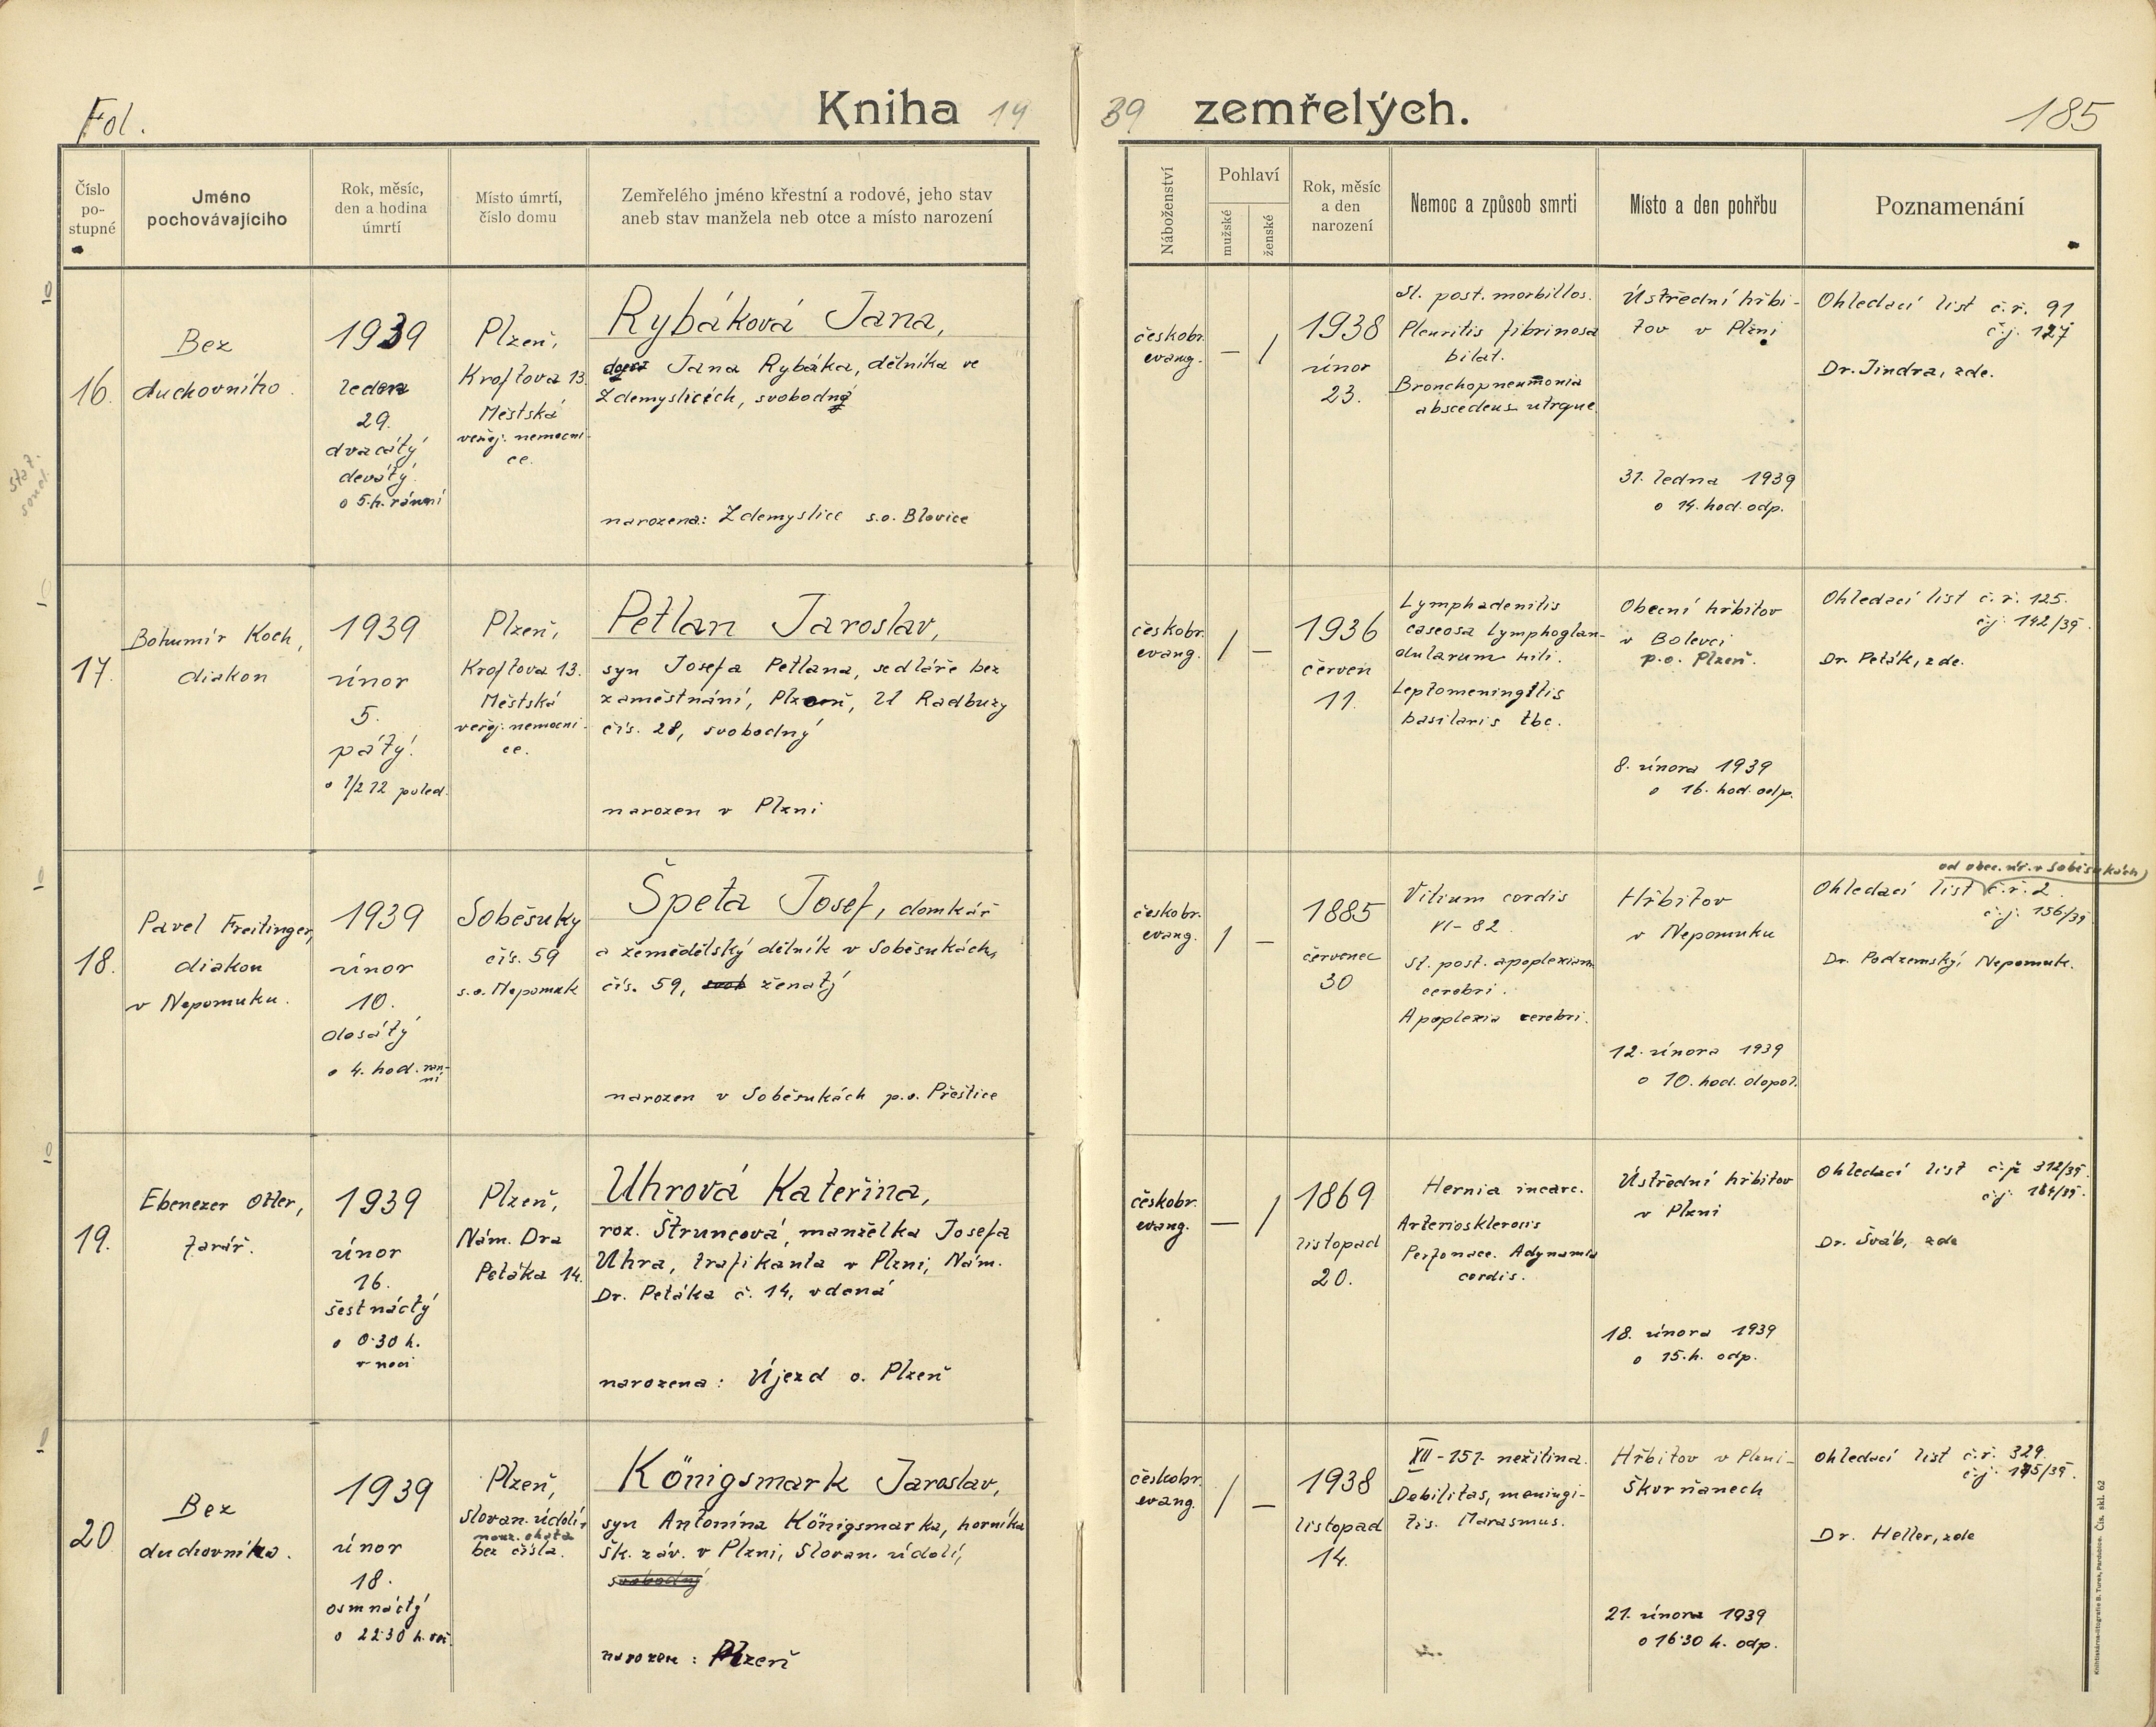 Fol.
Kniha 19 39 zemřelých.
185
Číslo po-stupné
Jméno pochovávajícího
Rok, měsíc, den a hodina úmrtí
Místo úmrtí, číslo domu
Zemřelého jméno křestní a rodové, jeho stav
aneb stav manžela neb otce a místo narození
Náboženství
Pohlaví
mužské
ženské
Rok, měsíc a den narození
Nemoc a způsob smrti
Místo a den pohřbu
Poznamenání
16.
Bez
duchovního.
1939
leden
29.
dvacátý
devátý.
o 5.h. ranní
Plzeň,
Kroftova 13.
Městská
veřej. nemocni-
ce.
Rybáková Jana,
dcera Jana Rybáka, dělníka ve
Zdemyslicích, svobodná
narozena: Zdemyslice s.o. Blovice
českobr.
evang.
—
/
1938
únor
23.
St. post. morbillos.
Pleuritis fibrinosa
bilat.
Bronchopneumonia
abscedens utrque.
Ústřední hřbi-
tov v Plzni
31. ledna 1939
o 14. hod. odp.
Ohledací list č.ř. 91
č.j. 127
Dr. Jindra, zde.
17.
Bohumír Koch,
diakon
1939
únor
5.
pátý.
o 1/2 12 poled.
Plzeň,
Kroftova 13.
Městská
veřej. nemocni-
ce.
Petlan Jaroslav,
syn Josefa Petlana, sedláře bez
zaměstnání, Plzeň, U Radbuzy
čís. 28, svobodný
narozen v Plzni
českobr.
evang.
/
—
1936
červen
11.
Lymphadenitis
caseosa lymphoglan-
dularum hili.
Leptomeningitis
basilaris tbc.
Obecní hřbitov
v Bolevci
p.o. Plzeň.
8. února 1939
o 16. hod. odp.
Ohledací list č.ř. 125.
čj. 142/39.
Dr. Peták, zde.
18.
Pavel Freitinger,
diakon
v Nepomuku.
1939
únor
10.
desátý
o 4. hod. ran-
ní
Soběsuky
čís. 59
s.o. Nepomuk
Špeta Josef, domkář
a zemědělský dělník v Soběsukách,
čís. 59, svob ženatý
narozen v Soběsukách p.o. Přeštice
českobr.
evang.
/
—
1885
červenec
30
Vitium cordis
VI - 82
St. post. apoplexiam
cerebri.
Apoplexia cerebri.
Hřbitov
v Nepomuku
12. února 1939
o 10. hod. dopol.
od obec. úř. v Soběsukách
Ohledací list č.ř. 2
č.j. 156/39
Dr. Podzemský, Nepomuk.
19.
Ebenezer Otter,
farář.
1939
únor
16.
šestnáctý
o 0.30 h.
v noci
Plzeň,
Nám. Dra
Petáka 14.
Uhrová Kateřina,
roz. Štruncová, manželka Josefa
Uhra, trafikanta v Plzni, Nám.
Dr. Petáka č. 14, vdaná
narozena: Újezd o. Plzeň
českobr.
evang.
—
/
1869
listopad
20.
Hernia incarc.
Arteriosklerosis
Adynamia
cordis.
Ústřední hřbitov
v Plzni
18. února 1939
o 15.h. odp.
Ohledací list č.ř. 312/39
čj. 164/39.
Dr. Šváb, zde
20
Bez
duchovního.
1939
únor
18.
osmnáctý
o 22.30 h.
Plzeň,
Slovan. údolí,
nouz. chata
bez čísla.
Königsmark Jaroslav,
syn Antonína Königsmarka, horníka
Šk. záv. v Plzni, Slovan. údolí,
svobodný
narozen: Plzeň
českobr.
evang.
/
—
1938
listopad
14.
XII - 157. nežitina.
Debilitas, meningi-
tis. Marasmus.
Hřbitov v Plzni-
Škvrňanech
21. února 1939
o 16.30 h. odp.
Ohledací list č.ř. 329.
čj. 175/39.
Dr. Heller, zde
Knihtiskárna-litografie B. Turek, Pardubice. Čís. skl. 62